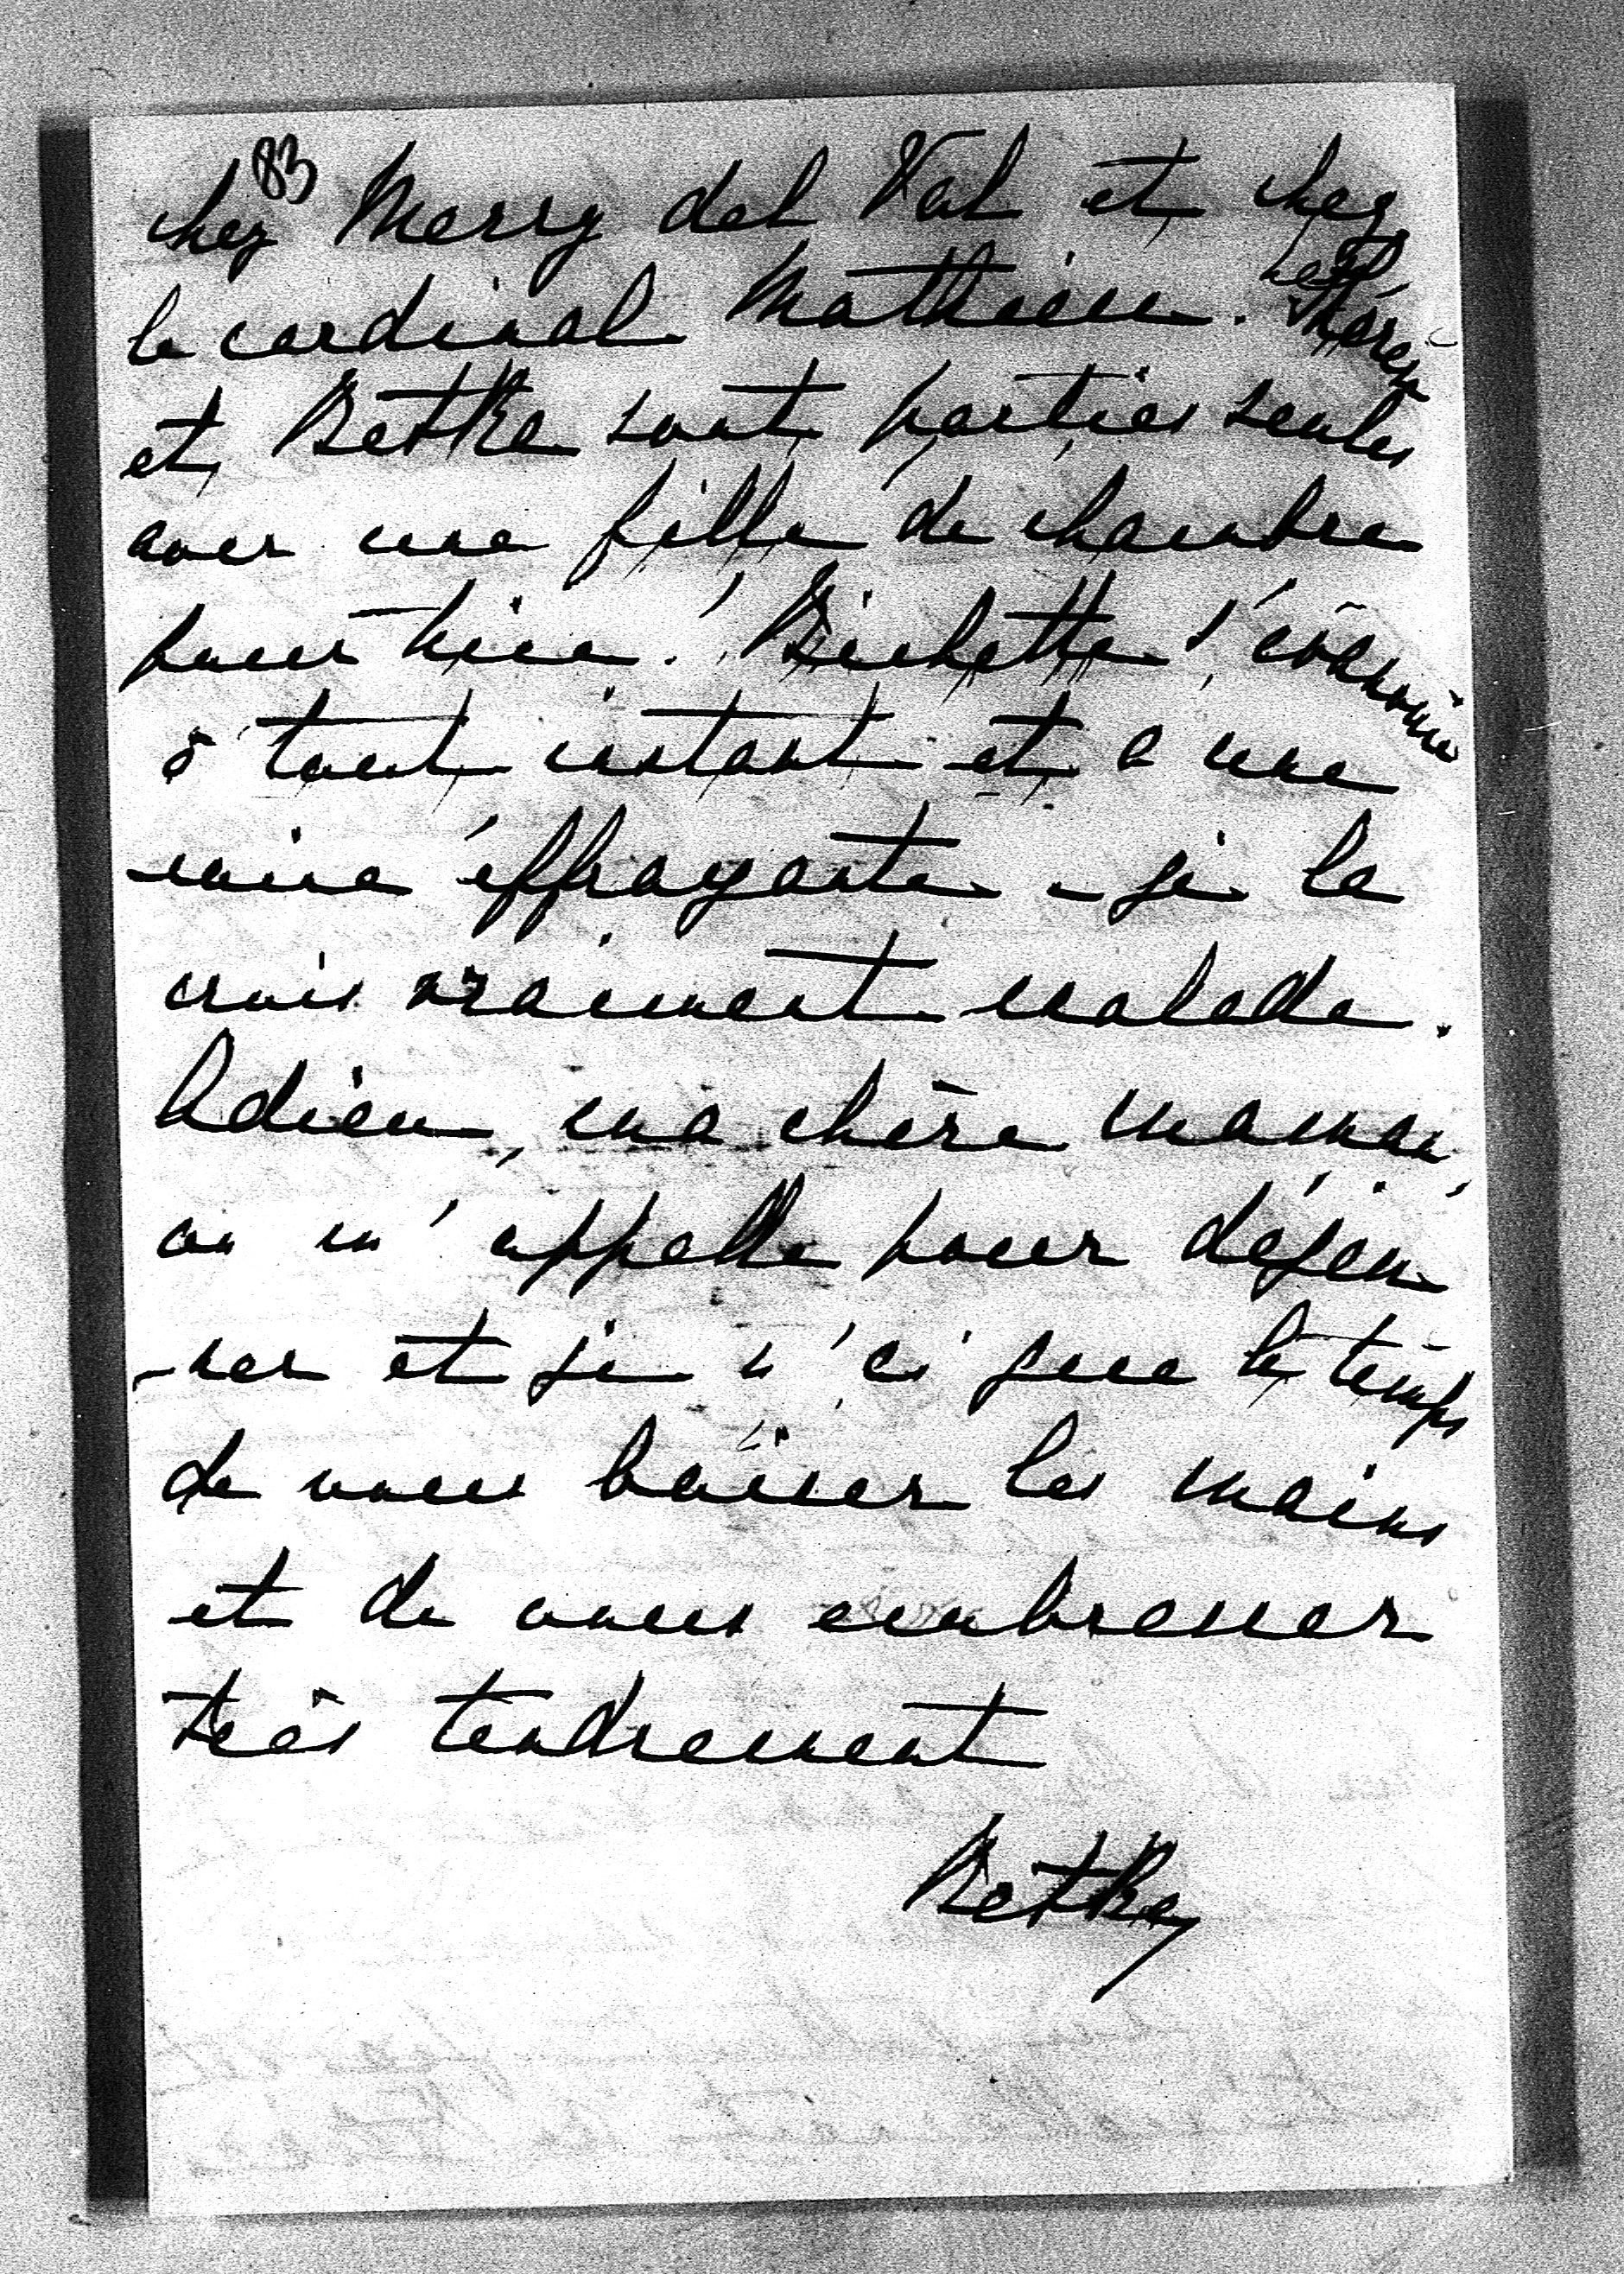 83
chez Merry del Val et chez
le cardinal Mathieu. Thérèse
et Betka sont parties seules
avec une fille de chambre
pour Nice. Bichette s'évanouie
à tout instant et a une
mine éffrayante - je la
crois vraiment malade.
Adieu, ma chère maman,
on m'appelle pour déjeu
-ner et je n'ai que le temps
de vous baiser les mains
et de vous embrasser
très tendrement
Betka